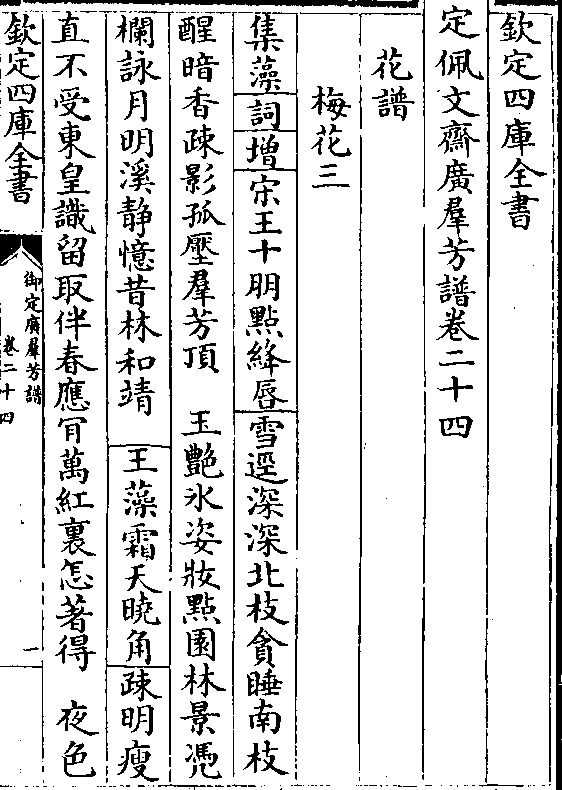 欽定四庫全書
定佩文齋廣羣芳譜卷二十四
花譜
梅花三
集藻詞增宋王十朋點絳唇雪逕深深北枝貪睡南枝
醒暗香疎影孤壓羣芳頂 玉艷氷姿妝點園林景凭
欄詠月明溪静憶昔林和靖 王藻霜天曉角疎明瘦
直不受東皇識留取伴春應肎萬紅裏怎著得 夜色
欽定四庫全書
御定廣羣芳譜
卷二十四
一